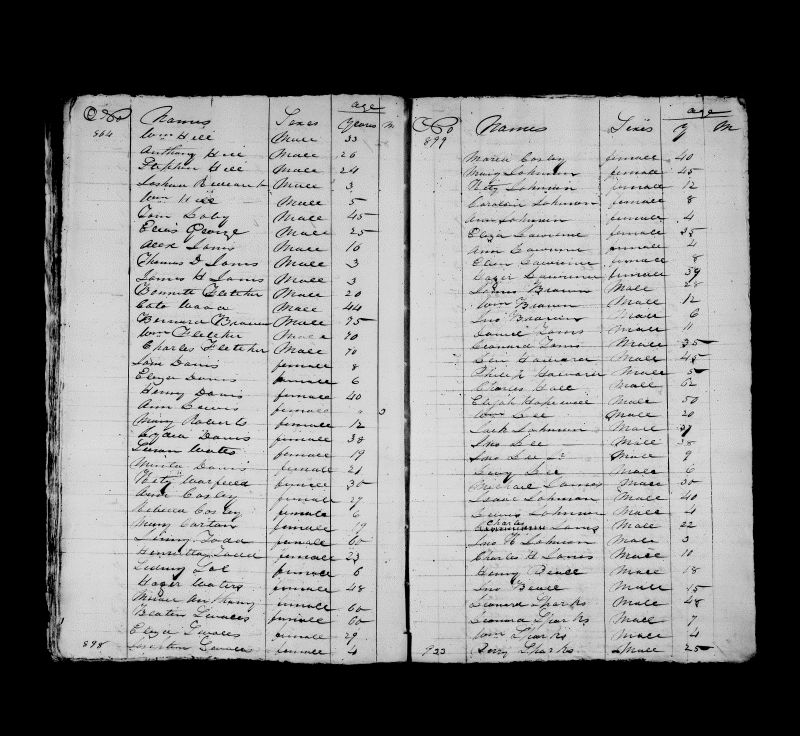 No Names Sexes age
Years M
864 Wm Hill Male 33
Anthony Hill Male 26
Stephen Hill Male 24
Joshua Male 3
Wm Hill Male 5
Tom Male 45
Elias George Male 25
Alex James Male 16
Thomas D James Male 3
James H James Male 3
Fletcher Male 20
Cato Male 44
Bernard Brown Male 75
Wm Fletcher Male 70
Charles Fletcher Male 70
Davis female 8
Eliza Davis female 6
Henny Davis female 40
Ann Lewis female " 3
Mary Roberts female 12
Lydia Davis female 38
Susan Waters female 19
Davis female 21
Hety Warfield female 30
Ann Cosley female 27
Rebecca Cosley female 6
Mary female 19
female 60
Henrietta female 23
Sidney female 6
Hager Waters female 48
Anthony female 60
female 60
Eliza female 29
898 female 4
No Names Sexes age
Y M
899
Maria Cosley female 40
Mary Johnson female 45
Hety Johnson female 12
Caroline Johnson female 8
Ann Johnson female 4
Eliza Lawrence female 35
Ann Lawrence female 4
Ellen Lawrence female 8
Lawrence female 59
James Brown Male 28
Wm Brown Male 12
Jno Brown Male 6
Male 11
Leonard Male 35
Levi Howard Male 45
Philip Howard Male 5
Charles Hall Male 62
Elijah Hopewell Male 50
Wm Lee Male 20
Jack Johnson Male
Jno Lee Male 38
Jno Lee Jr Male 9
Levy Lee Male 6
Michael James Male 30
Isaac Johnson Male 40
Lewis Johnson Male 4
Charles James Male 22
Jno H Johnson Male 3
Charles H James Male 10
Henry Male 18
Jno Male 15
Leonard Sparks Male 48
Leonard Sparks Male 7
Wm Sparks Male 4
933 Perry Sparks Male 25